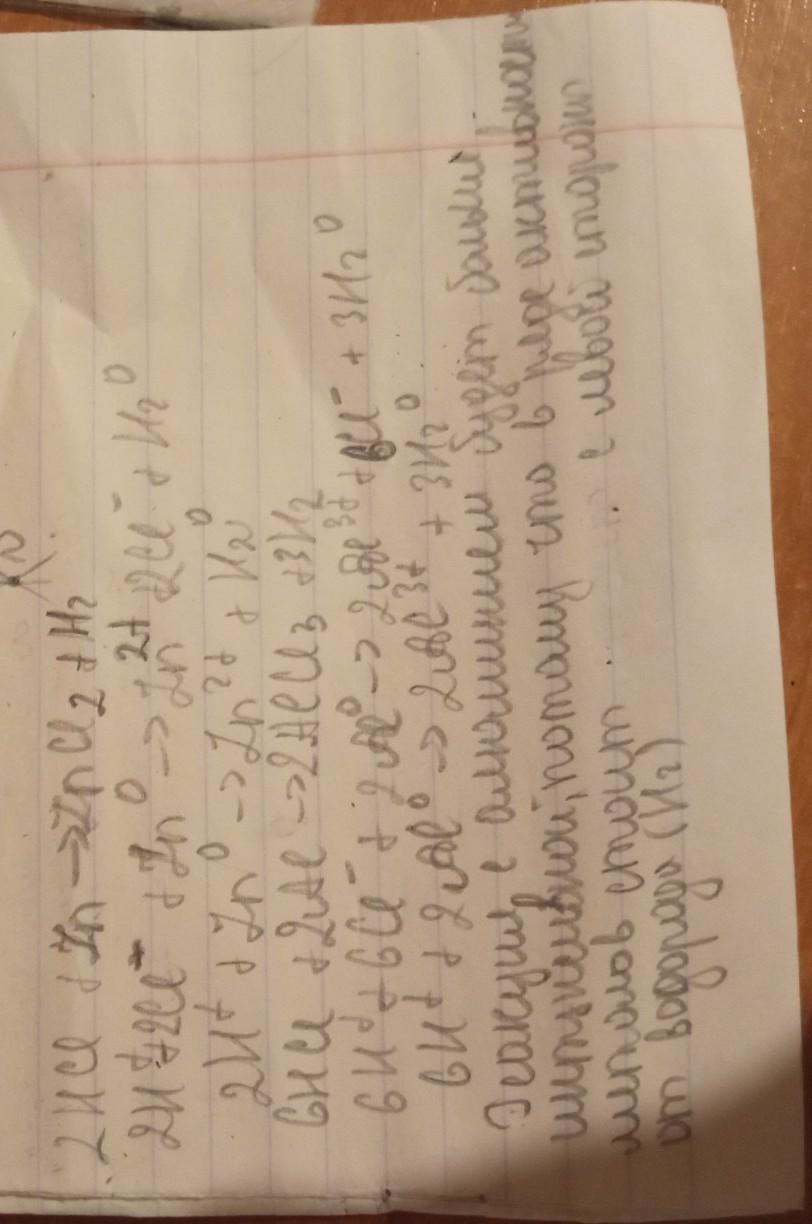 №
2HCl + Zn → ZnCl₂ + H₂
2H⁺ + 2Cl⁻ + Zn⁰ → Zn²⁺ + 2Cl⁻ + H₂⁰
2H⁺ + Zn⁰ → Zn²⁺ + H₂⁰
6HCl + 2Al → 2AlCl₃ + 3H₂
6H⁺ + 6Cl⁻ + 2Al⁰ → 2Al³⁺ + 6Cl⁻ + 3H₂⁰
6H⁺ + 2Al⁰ → 2Al³⁺ + 3H₂⁰
с алюминием будет более
потому что в ряде активности
стоит с левой стороны
от (H₂)